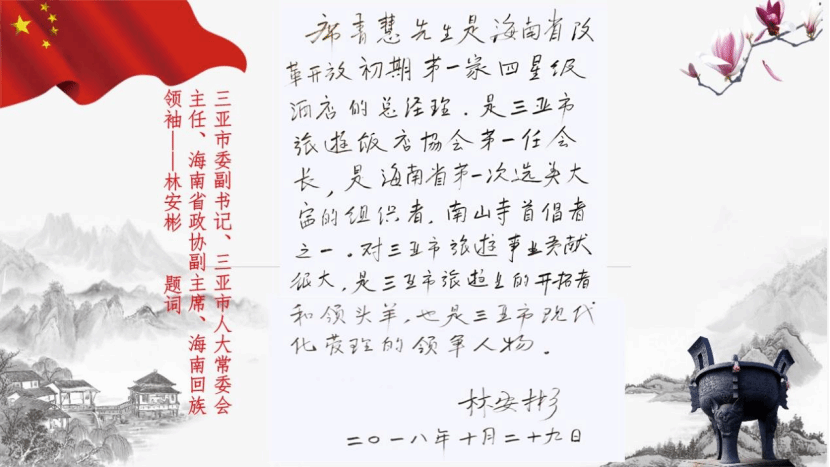 三亚市委副书记、三亚市人大常委会
主任、海南省政协副主席、海南回族
领袖——林安彬 题词
席青慧先生是海南省改
革开放初期第一家四星级
酒店的总经理.是三亚市
旅遊饭店協会第一任会
长,是海南省第一次选美大
赛的组织者.南山寺首倡者
之一.对三亚市旅遊事业贡献
很大,是三亚市旅遊业的开拓者
和领头羊,也是三亚市现代
化管理的领军人物.
林安彬
二〇一八年十月二十九日